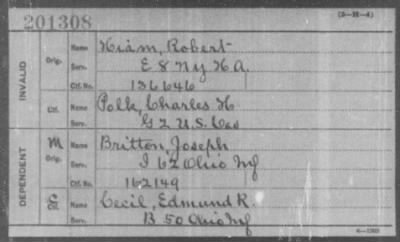 201308
(3—H—4)
INVALID
Orig. Name Hiam, Robert
Serv. E 8 Ny H.A.
Ctf. No. 136646
Ctf. Name Polk, Charles H
Serv. G 2 U.S.
DEPENDENT
M Orig. Name Britton, Joseph
Serv. I 62 Ohio Inf
Ctf. No. 162149
C Name Cecil, Edmund R.
Serv. B 50 Ohio Inf